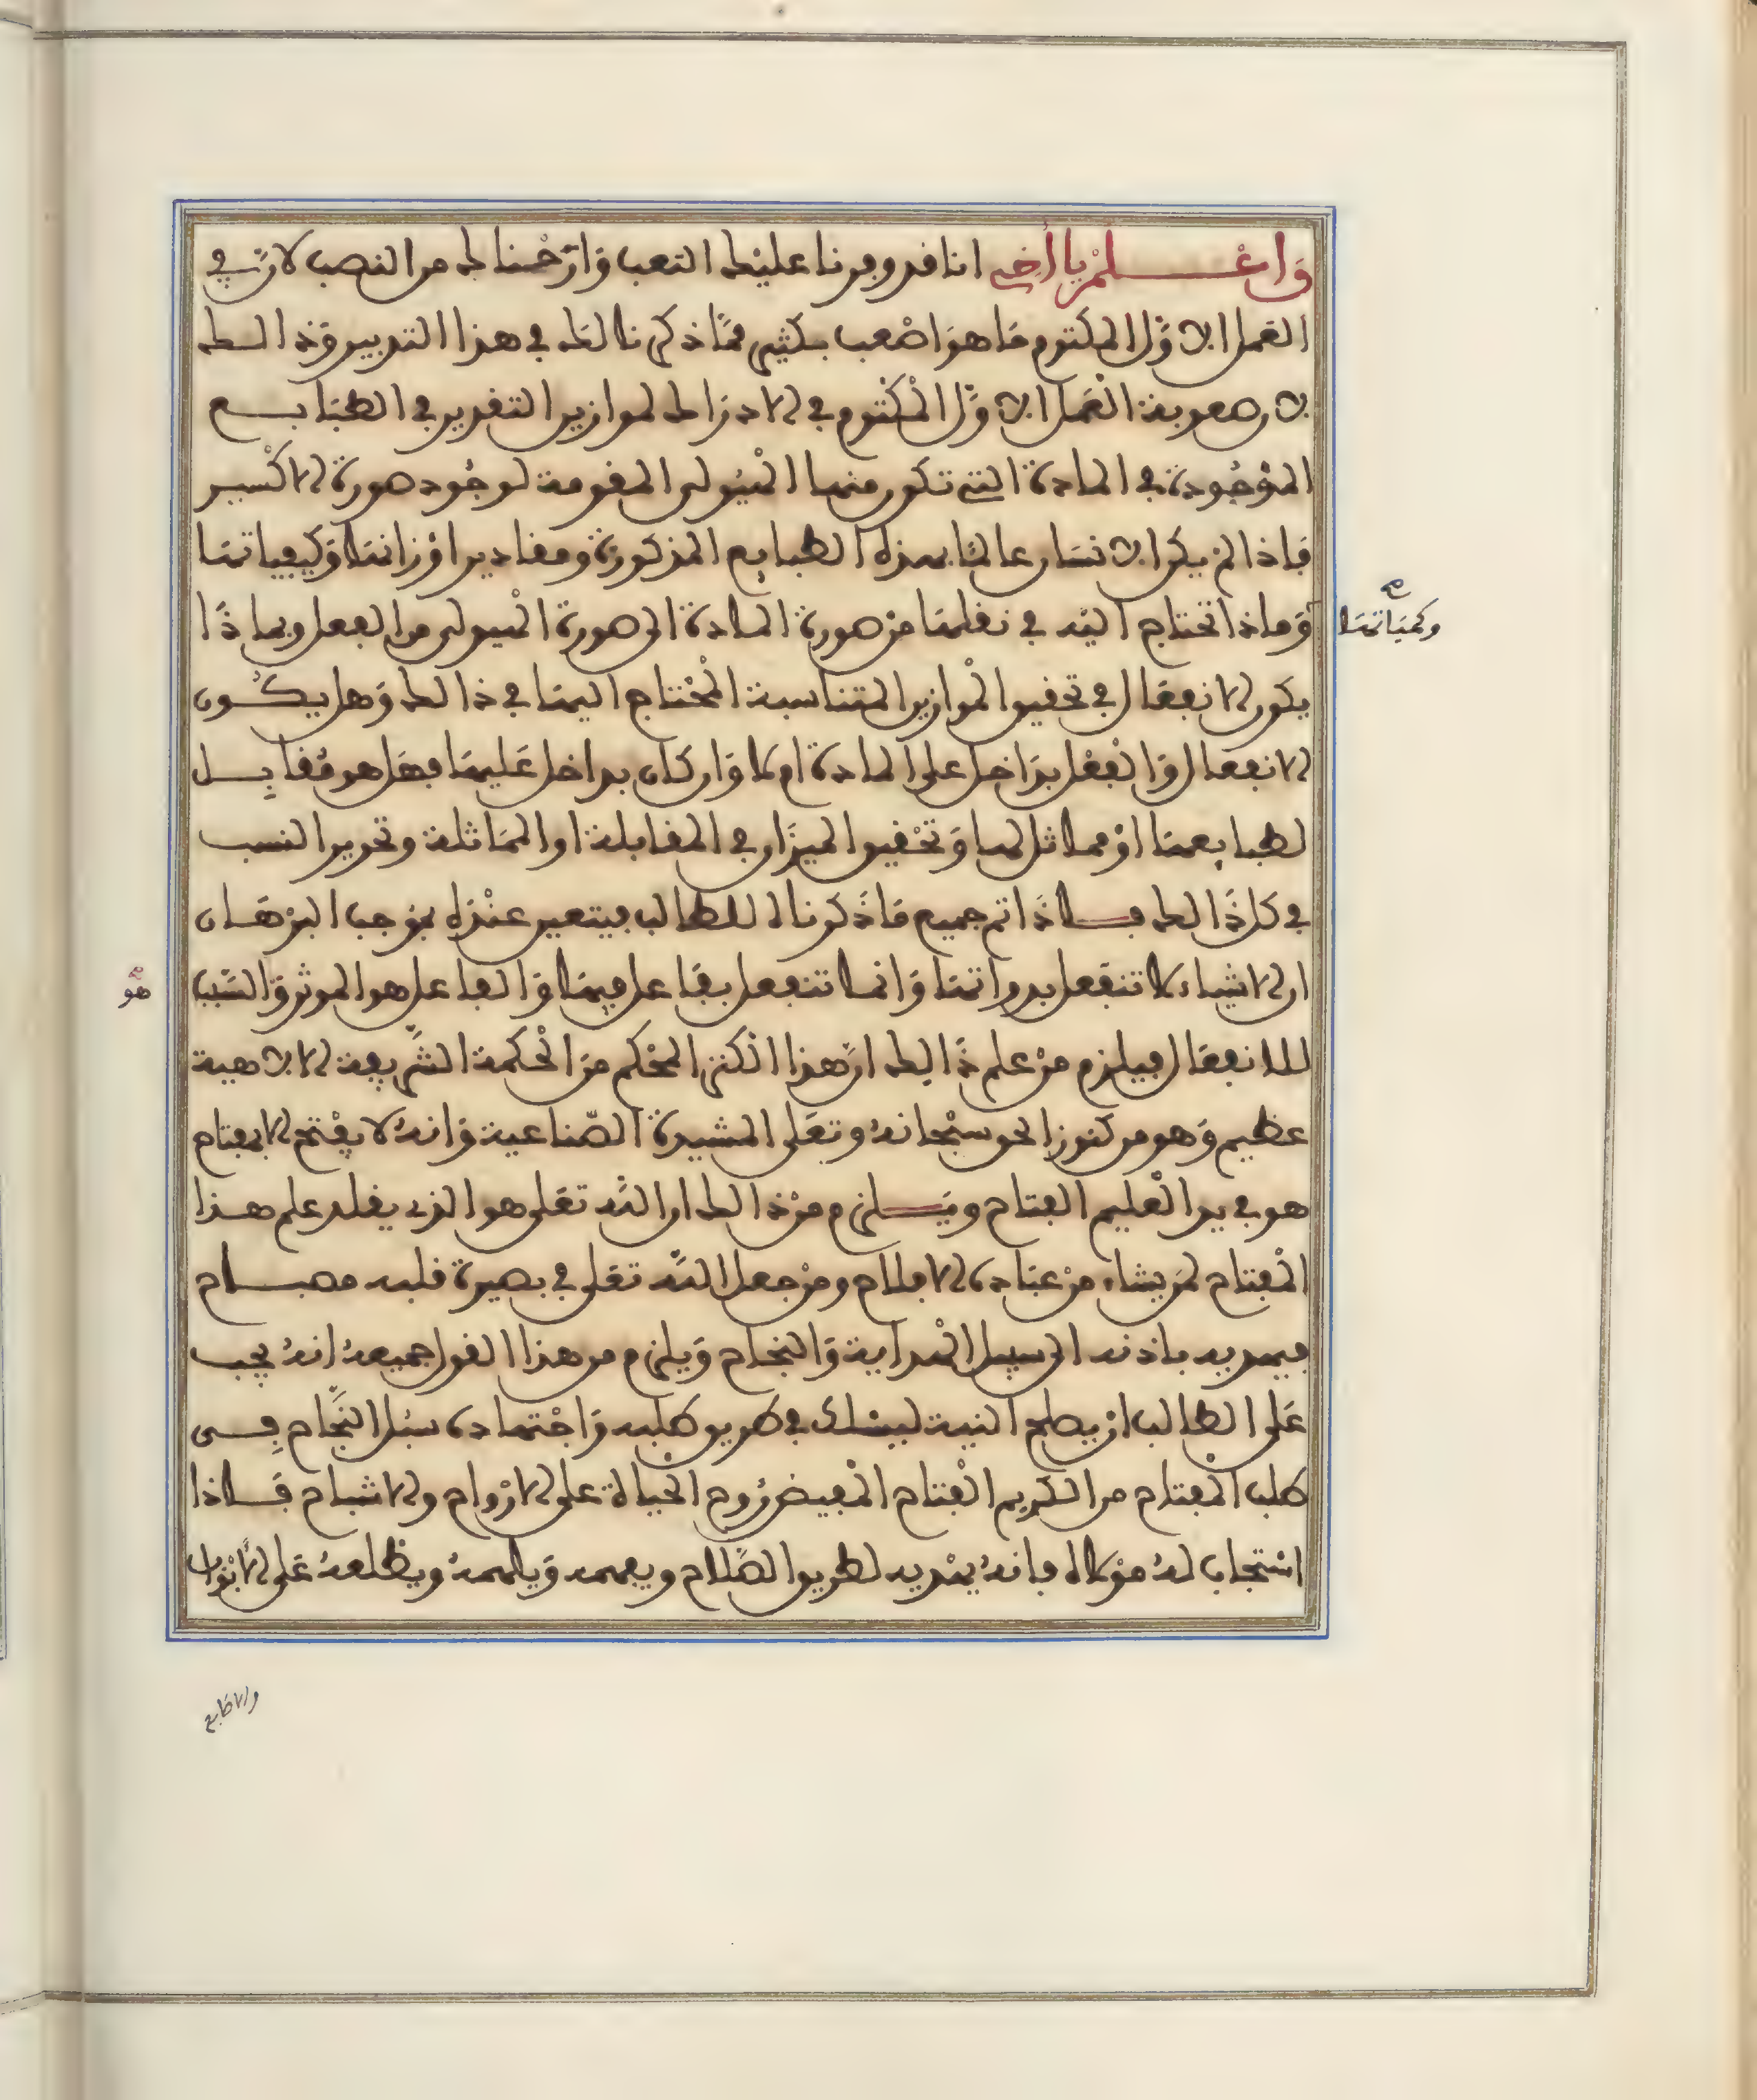 وَاعْلَمْ يا أخي انا قد وفرنا عليْك التعب وَارَحْنَاك من النصب لانّ في
العَمل الاوّل المكتوم مَا هوَ اصْعب بكثير ممَّا ذكرنا لك في هذا التدبير وَذالك
لان صعوبة العَمل الاوّل المكْتوم في الادراك لموازين التقدير في الطبَايع
الموْجُودة في المادة التي تكون منها الهيُولى المقومة لوجُود صورة الاكْسير
فاذا لمْ يكن الانسَان عالمًا بهذه الطبايع المذكورة ومقادير اوْزانهَا وَكيفياتهَا
وكميَاتهَا صح
وَماذا تحْتاج اليْه في نقلهَا منْ صورة المادة الى صورة الهيولى من الفعل وبماذَا
يكون الانفعَال في تحقيق الموْازين المتناسبة المحْتاج اليهَا في ذالك وَهل يكُون
الانفعال وَالفعْل بدَاخل على المادة ام لا وَان كان بداخل عَليهَا فهَل هو مُقابِل
لطبايعهَا اوْ مماثل لهَا وَتحْقيق الميزَان في المقابلة او الممَاثلة وتحرير النسب
في كل ذَالك فاذَا تم جميع مَا ذَكرناه للطالب فيتعين عنْده بموجب البرْهَان
ان الاشياء لا تنفَعل بذواتهَا وَانما تنفعل بفَاعل فيهَا وَالفاعل هو الموثر وَالسَّبب
هو صح
للانفعَال فيلزم منْ علم ذَالك انّ هذا الكنز المحْكم منَ الحْكمة الشَّريفة الالاهية
عظيم وَهو من كنوز الحق سبْحَانهُ وتعَلى المشيدة الصّناعية وَانهُ لا يفْتح الا بمفتاح
هو في يد العْليم الفتاح ويَلزم منْ ذالك ان اللَّه تعَلى هو الذي يقلد علم هذا
المْفتاح لمَن يشاء منْ عبَاده الافلاح ومنْ جعل اللَّه تعَلى في بصيرة قلبه مصباح
فيهديه باذنه الى سبيل الهْداية وَالنجَاح وَيلزم من هذا القول جميعهُ انهُ يجب
عَلى الطالب انْ يصلح النية ليسْلك في طريق طلبه وَاجْتهاده سبُل النَّجَاح في
طلب المْفتاح من الكريم الفْتاح المْفيض رُوح الحيَاة على الارْواح والاشباح فَاذا
اسْتجاب لهُ موْلاه فانهُ يهْديه لطريق الصَّلاح ويفهمه وَيلهمهُ ويطلعهُ عَلى الابْواب
والاطَابع